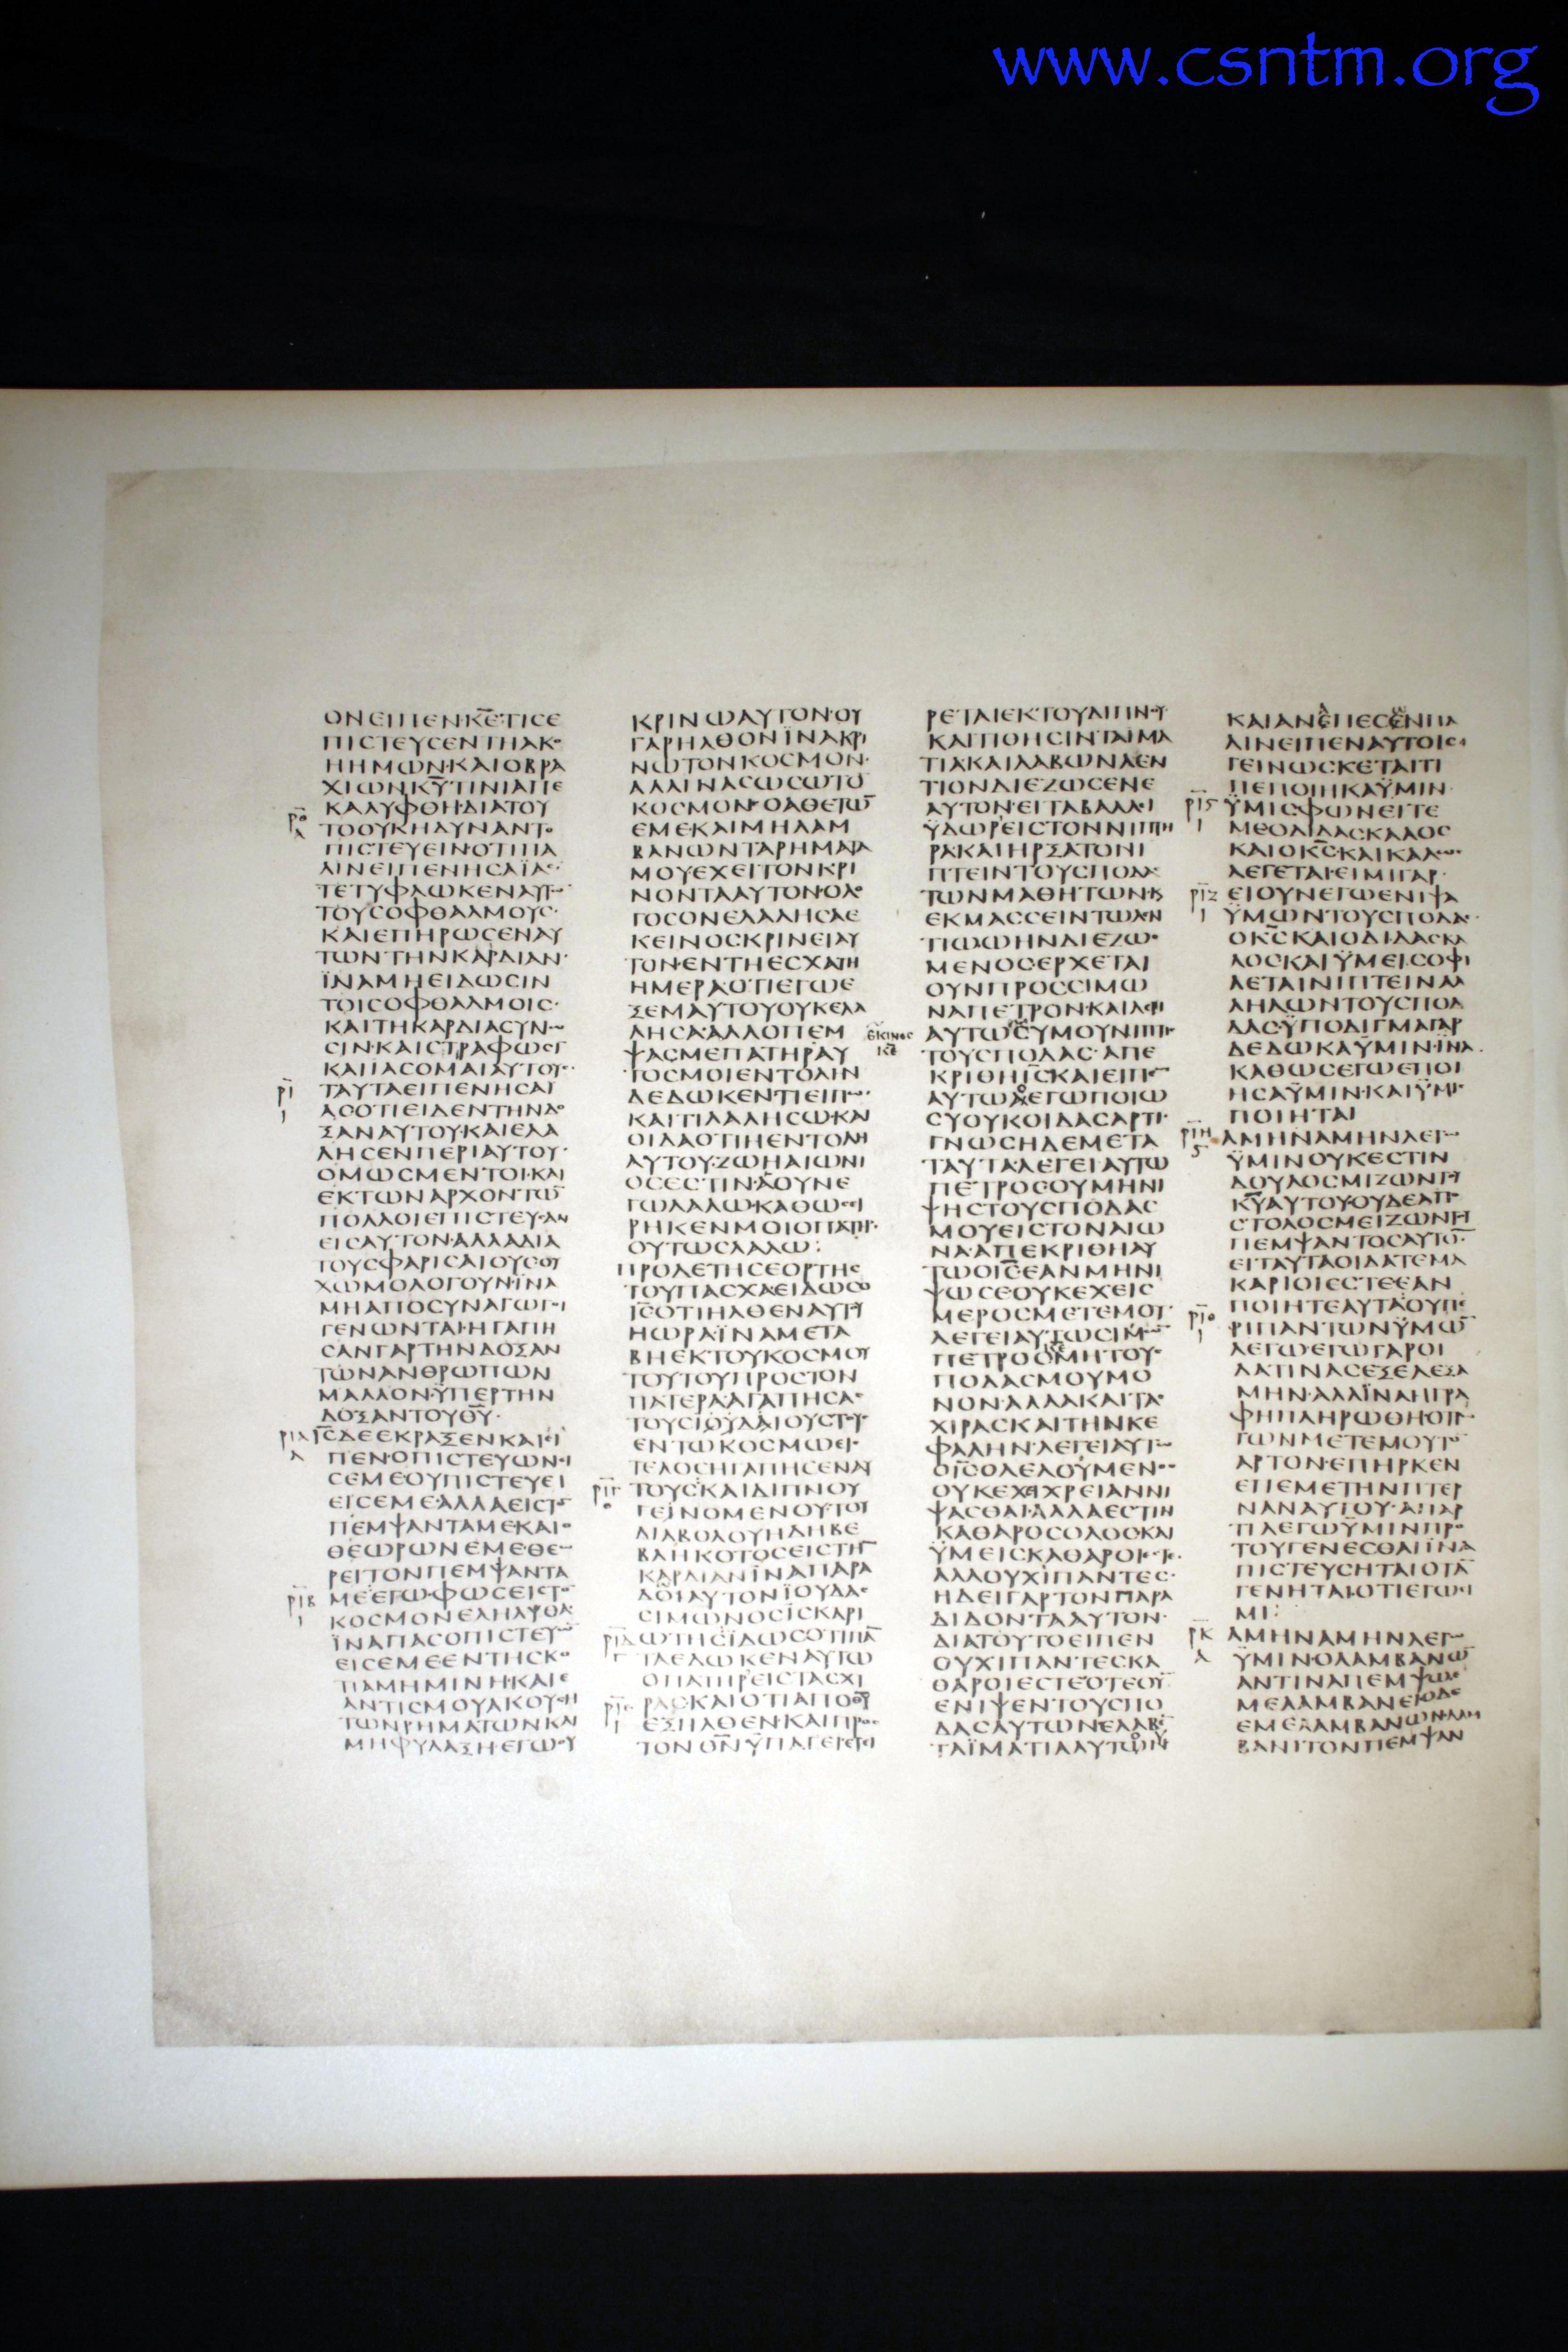 www.csntm.org
ΟΝΕΙΠΕΝΚ̅Ε̅ΤΙСΕ
ΠΙСΤΕΥСΕΝΤΗΑΚΟ
ΗΗΜΩΝ·ΚΑΙΟΒΡΑ
ΧΙΩΝΚ̅Υ̅ΤΙΝΙΑΠΕ
ΚΑΛΥΦΘΗ·ΔΙΑΤΟΥ
ΤΟΟΥΚΗΔΥΝΑΝΤΟ
ΠΙСΤΕΥΕΙΝ·ΟΤΙΠΑ
ΛΙΝΕΙΠΕΝΗСΑΪΑС·
ΤΕΤΥΦΛΩΚΕΝΑΥΤΩ̅
ΤΟΥСΟΦΘΑΛΜΟΥС·
ΚΑΙΕΠΗΡΩСΕΝΑΥ
ΤΩΝΤΗΝΚΑΡΔΙΑΝ·
ΪΝΑΜΗΕΙΔΩСΙΝ
ΤΟΙСΟΦΘΑΛΜΟΙС·
ΚΑΙΤΗΚΑΡΔΙΑСΥΝΩ
СΙΝ·ΚΑΙСΤΡΑΦΩСΙ
ΚΑΙΙΑСΟΜΑΙΑΥΤΟΥС·
ΤΑΥΤΑΕΙΠΕΝΗСΑΪ
ΑСΟΤΙΕΙΔΕΝΤΗΝΔΟ
ΞΑΝΑΥΤΟΥ·ΚΑΙΕΛΑ
ΛΗСΕΝΠΕΡΙΑΥΤΟΥ·
ΟΜΩСΜΕΝΤΟΙ·ΚΑΙ
ΕΚΤΩΝΑΡΧΟΝΤΩ̅
ΠΟΛΛΟΙΕΠΙСΤΕΥСΑΝ
ΕΙСΑΥΤΟΝ·ΑΛΛΑΔΙΑ
ΤΟΥСΦΑΡΙСΑΙΟΥСΟΥ
ΧΩΜΟΛΟΓΟΥΝ·ΪΝΑ
ΜΗΑΠΟСΥΝΑΓΩΓΟΙ
ΓΕΝΩΝΤΑΙ·ΗΓΑΠΗ
СΑΝΓΑΡΤΗΝΔΟΞΑΝ
ΤΩΝΑΝΘΡΩΠΩΝ
ΜΑΛΛΟΝ·ΫΠΕΡΤΗΝ
ΔΟΞΑΝΤΟΥΘ̅Υ̅·
Ι̅С̅ΔΕΕΚΡΑΞΕΝΚΑΙΕΙ
ΠΕΝ·ΟΠΙСΤΕΥΩΝΕΙ
СΕΜΕΟΥΠΙСΤΕΥΕΙ
ΕΙСΕΜΕ·ΑΛΛΑΕΙСΤΟ̅
ΠΕΜΨΑΝΤΑΜΕ·ΚΑΙΟ
ΘΕΩΡΩΝΕΜΕ·ΘΕΩ
ΡΕΙΤΟΝΠΕΜΨΑΝΤΑ
ΜΕ·ΕΓΩ·ΦΩСΕΙСΤΟ̅
ΚΟСΜΟΝΕΛΗΛΥΘΑ
ΪΝΑΠΑСΟΠΙСΤΕΥΩ̅
ΕΙСΕΜΕΕΝΤΗСΚΟ
ΤΙΑΜΗΜΙΝΗ·ΚΑΙΕ
ΑΝΤΙСΜΟΥΑΚΟΥСΗ
ΤΩΝΡΗΜΑΤΩΝΚΑΙ
ΜΗΦΥΛΑΞΗΕΓΩΟΥ
ΚΡΙΝΩΑΥΤΟΝ·ΟΥ
ΓΑΡΗΛΘΟΝΪΝΑΚΡΙ
ΝΩΤΟΝΚΟСΜΟΝ·
ΑΛΛΙΝΑСΩСΩΤΟ̅
ΚΟСΜΟΝ·ΟΑΘΕΤΩ̅
ΕΜΕΚΑΙΜΗΛΑΜ
ΒΑΝΩΝΤΑΡΗΜΑΤΑ
ΜΟΥΕΧΕΙΤΟΝΚΡΙ
ΝΟΝΤΑΑΥΤΟΝ·ΟΛΟ
ΓΟСΟΝΕΛΑΛΗСΑΕ
ΚΕΙΝΟСΚΡΙΝΕΙΑΥ
ΤΟΝ·ΕΝΤΗΕСΧΑΤΗ
ΗΜΕΡΑ·ΟΤΙΕΓΩΕ
ΞΕΜΑΥΤΟΥΟΥΚΕΛΑ
ΛΗСΑ·ΑΛΛΟΠΕΜ
ΨΑСΜΕΠΑΤΗΡΑΥ
ΤΟСΜΟΙΕΝΤΟΛΗΝ
ΔΕΔΩΚΕΝΤΙΕΙΠΩ·
ΚΑΙΤΙΛΑΛΗСΩ·ΚΑΙ
ΟΙΔΑΟΤΙΗΕΝΤΟΛΗ
ΑΥΤΟΥ·ΖΩΗΑΙΩΝΙ
ΟСΕСΤΙΝ·ΑΟΥΝΕ
ΓΩΛΑΛΩ·ΚΑΘΩСΕΙ
ΡΗΚΕΝΜΟΙΟΠΑΤΗΡ·
ΟΥΤΩСΛΑΛΩ:
ΠΡΟΔΕΤΗСΕΟΡΤΗС
ΤΟΥΠΑСΧΑ·ΕΙΔΩСΟ
Ι̅С̅ΟΤΙΗΛΘΕΝΑΥΤΟΥ
ΗΩΡΑ·ΪΝΑΜΕΤΑ
ΒΗΕΚΤΟΥΚΟСΜΟΥ
ΤΟΥΤΟΥΠΡΟСΤΟΝ
ΠΑΤΕΡΑ·ΑΓΑΠΗСΑС
ΤΟΥСΙΟΥΔΑΙΟΥСΤΟΥС
ΕΝΤΩΚΟСΜΩΕΙС
ΤΕΛΟСΗΓΑΠΗСΕΝΑΥ
ΤΟΥС·ΚΑΙΔΙΠΝΟΥ
ΓΕΙΝΟΜΕΝΟΥ·ΤΟΥ
ΔΙΑΒΟΛΟΥΗΔΗΒΕ
ΒΛΗΚΟΤΟСΕΙСΤΗ̅
ΚΑΡΔΙΑΝΪΝΑΠΑΡΑ
ΔΟΙΑΥΤΟΝΪΟΥΔΑС
СΙΜΩΝΟСΪСΚΑΡΙ
ΩΤΗС·ΪΔΩСΟΤΙΠΑ̅
ΤΑΕΔΩΚΕΝΑΥΤΩ
ΟΠΑΤΗΡΕΙСΤΑСΧΙ
ΡΑС·ΚΑΙΟΤΙΑΠΟΘ̅Υ̅
ΕΞΗΛΘΕΝ·ΚΑΙΠΡΟС
ΤΟΝΘ̅Ν̅ΫΠΑΓΕΙ·ΕΓΕΙ
ΕΚΙΝΟС
Κ̅Ε̅
ΡΕΤΑΙΕΚΤΟΥΔΙΠΝΟΥ
ΚΑΙΤΙΘΗСΙΝΤΑΪΜΑ
ΤΙΑΚΑΙΛΑΒΩΝΛΕΝ
ΤΙΟΝΔΙΕΖΩСΕΝΕ
ΑΥΤΟΝ·ΕΙΤΑΒΑΛΛΕΙ
ΫΔΩΡΕΙСΤΟΝΝΙΠΤΗ
ΡΑΚΑΙΗΡΞΑΤΟΝΙ
ΠΤΕΙΝΤΟΥСΠΟΔΑС
ΤΩΝΜΑΘΗΤΩΝ·Κ
ΕΚΜΑССΕΙΝΤΩΛΕΝ
ΤΙΩΩΗΝΔΙΕΖΩС
ΜΕΝΟС·ΕΡΧΕΤΑΙ
ΟΥΝΠΡΟССΙΜΩ
ΝΑΠΕΤΡΟΝ·ΚΑΙΛΕΓΙ
ΑΥΤΩСΥΜΟΥΝΙΠΤΙС
ΤΟΥСΠΟΔΑС·ΑΠΕ
ΚΡΙΘΗΙ̅С̅ΚΑΙΕΙΠΕ̅
ΑΥΤΩΑΕΓΩΠΟΙΩ
СΥΟΥΚΟΙΔΑСΑΡΤΙ·
ΓΝΩСΗΔΕΜΕΤΑ
ΤΑΥΤΑ·ΛΕΓΕΙΑΥΤΩ
ΠΕΤΡΟС·ΟΥΜΗΝΙ
ΨΗСΤΟΥСΠΟΔΑС
ΜΟΥΕΙСΤΟΝΑΙΩ
ΝΑ·ΑΠΕΚΡΙΘΗΑΥ
ΤΩΟΙ̅С̅ΕΑΝΜΗΝΙ
ΨΩСΕΟΥΚΕΧΕΙС
ΜΕΡΟСΜΕΤΕΜΟΥ·
ΛΕΓΕΙΑΥΤΩСΙΜΩ̅
ΠΕΤΡΟСΜΗΤΟΥС
ΠΟΔΑСΜΟΥΜΟ
ΝΟΝ·ΑΛΛΑΚΑΙΤΑС
ΧΙΡΑСΚΑΙΤΗΝΚΕ
ΦΑΛΗΝ·ΛΕΓΕΙΑΥΤΩ
ΟΙ̅С̅ΟΛΕΛΟΥΜΕΝΟС
ΟΥΚΕΧΕΙΧΡΕΙΑΝΝΙ
ΨΑСΘΑΙ·ΑΛΛΑΕСΤΙΝ
ΚΑΘΑΡΟСΟΛΟС·ΚΑΙ
ΫΜΕΙСΚΑΘΑΡΟΙΕСΤΕ·
ΑΛΛΟΥΧΙΠΑΝΤΕС·
ΗΔΕΙΓΑΡΤΟΝΠΑΡΑ
ΔΙΔΟΝΤΑΑΥΤΟΝ·
ΔΙΑΤΟΥΤΟΕΙΠΕΝ
ΟΥΧΙΠΑΝΤΕСΚΑ
ΘΑΡΟΙΕСΤΕ·ΟΤΕΟΥ̅
ΕΝΙΨΕΝΤΟΥСΠΟ
ΔΑСΑΥΤΩΝΕΛΑΒΕ
ΤΑΪΜΑΤΙΑΑΥΤΟΥ
ΚΑΙΑΝΕΠΕСΕΝΠΑ
ΛΙΝΕΙΠΕΝΑΥΤΟΙС·
ΓΕΙΝΩСΚΕΤΑΙΤΙ
ΠΕΠΟΙΗΚΑΫΜΙΝ·
ΫΜΙСΦΩΝΕΙΤΕ
ΜΕΟΔΙΔΑСΚΑΛΟС
ΚΑΙΟΚ̅С̅·ΚΑΙΚΑΛΩС
ΛΕΓΕΤΑΙ·ΕΙΜΙΓΑΡ·
ΕΙΟΥΝΕΓΩΕΝΙΨΑ
ΫΜΩΝΤΟΥСΠΟΔΑС·
ΟΚ̅С̅ΚΑΙΟΔΙΔΑСΚΑ
ΛΟСΚΑΙΫΜΕΙСΟΦΙ
ΛΕΤΑΙΝΙΠΤΕΙΝΑΛ
ΛΗΛΩΝΤΟΥСΠΟΔ
ΔΑС·ΫΠΟΔΙΓΜΑΓΑΡ
ΔΕΔΩΚΑΫΜΙΝ·ΪΝΑ
ΚΑΘΩСΕΓΩΕΠΟΙ
ΗСΑΫΜΙΝ·ΚΑΙΫΜΙС
ΠΟΙΗΤΑΙ
ΑΜΗΝΑΜΗΝΛΕΓΩ
ΫΜΙΝΟΥΚΕСΤΙΝ
ΔΟΥΛΟСΜΙΖΩΝΤΟΥ
Κ̅Υ̅ΑΥΤΟΥ·ΟΥΔΕΑΠΟ
СΤΟΛΟСΜΕΙΖΩΝΤΟΥ
ΠΕΜΨΑΝΤΟСΑΥΤΟ̅·
ΕΙΤΑΥΤΑΟΙΔΑΤΕΜΑ
ΚΑΡΙΟΙΕСΤΕ·ΕΑΝ
ΠΟΙΗΤΕΑΥΤΑ·ΟΥΠΕ
ΡΙΠΑΝΤΩΝΫΜΩ̅
ΛΕΓΩ·ΕΓΩΓΑΡΟΙ
ΔΑΤΙΝΑСΕΞΕΛΕΞΑ
ΜΗΝ·ΑΛΛΪΝΑΗΓΡΑ
ΦΗΠΛΗΡΩΘΗ·ΟΤΡΩ
ΓΩΝΜΕΤΕΜΟΥΤΟ̅
ΑΡΤΟΝ·ΕΠΗΡΚΕΝ
ΕΠΕΜΕΤΗΝΠΤΕΡ
ΝΑΝΑΥΤΟΥ·ΑΠΑΡ
ΤΙΛΕΓΩΫΜΙΝΠΡΟ
ΤΟΥΓΕΝΕСΘΑΙΪΝΑ
ΠΙСΤΕΥСΗΤΑΙΟΤΑ̅
ΓΕΝΗΤΑΙ·ΟΤΙΕΓΩΕΙ
ΜΙ:
ΑΜΗΝΑΜΗΝΛΕΓΩ
ΫΜΙΝ·ΟΛΑΜΒΑΝΩ̅
ΑΝΤΙΝΑΠΕΜΨΩΕ
ΜΕΛΑΜΒΑΝΕΙ·ΟΔΕ
ΕΜΕΛΑΜΒΑΝΩΝ·ΛΑΜ
ΒΑΝΙΤΟΝΠΕΜΨΑΝ